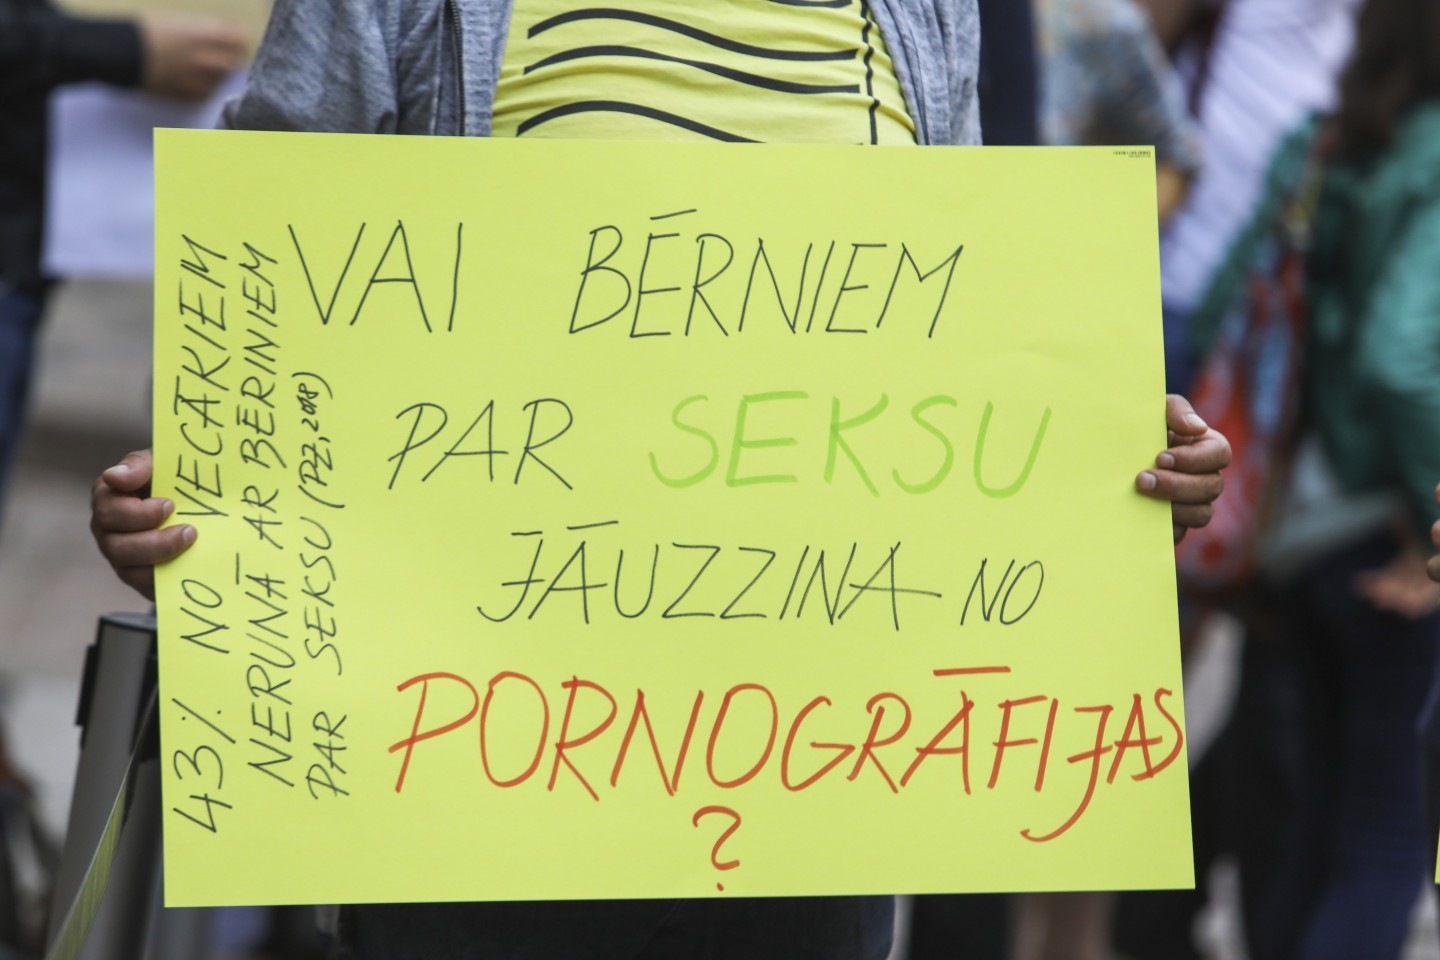 VAI BĒRNIEM
PAR SEKSU
JĀUZZINA NO
PORNOGRĀFIJAS
?
43% NO VECĀKIEM
NERUNĀ AR BĒRINIEM
PAR SEKSU (PZ, 2018)